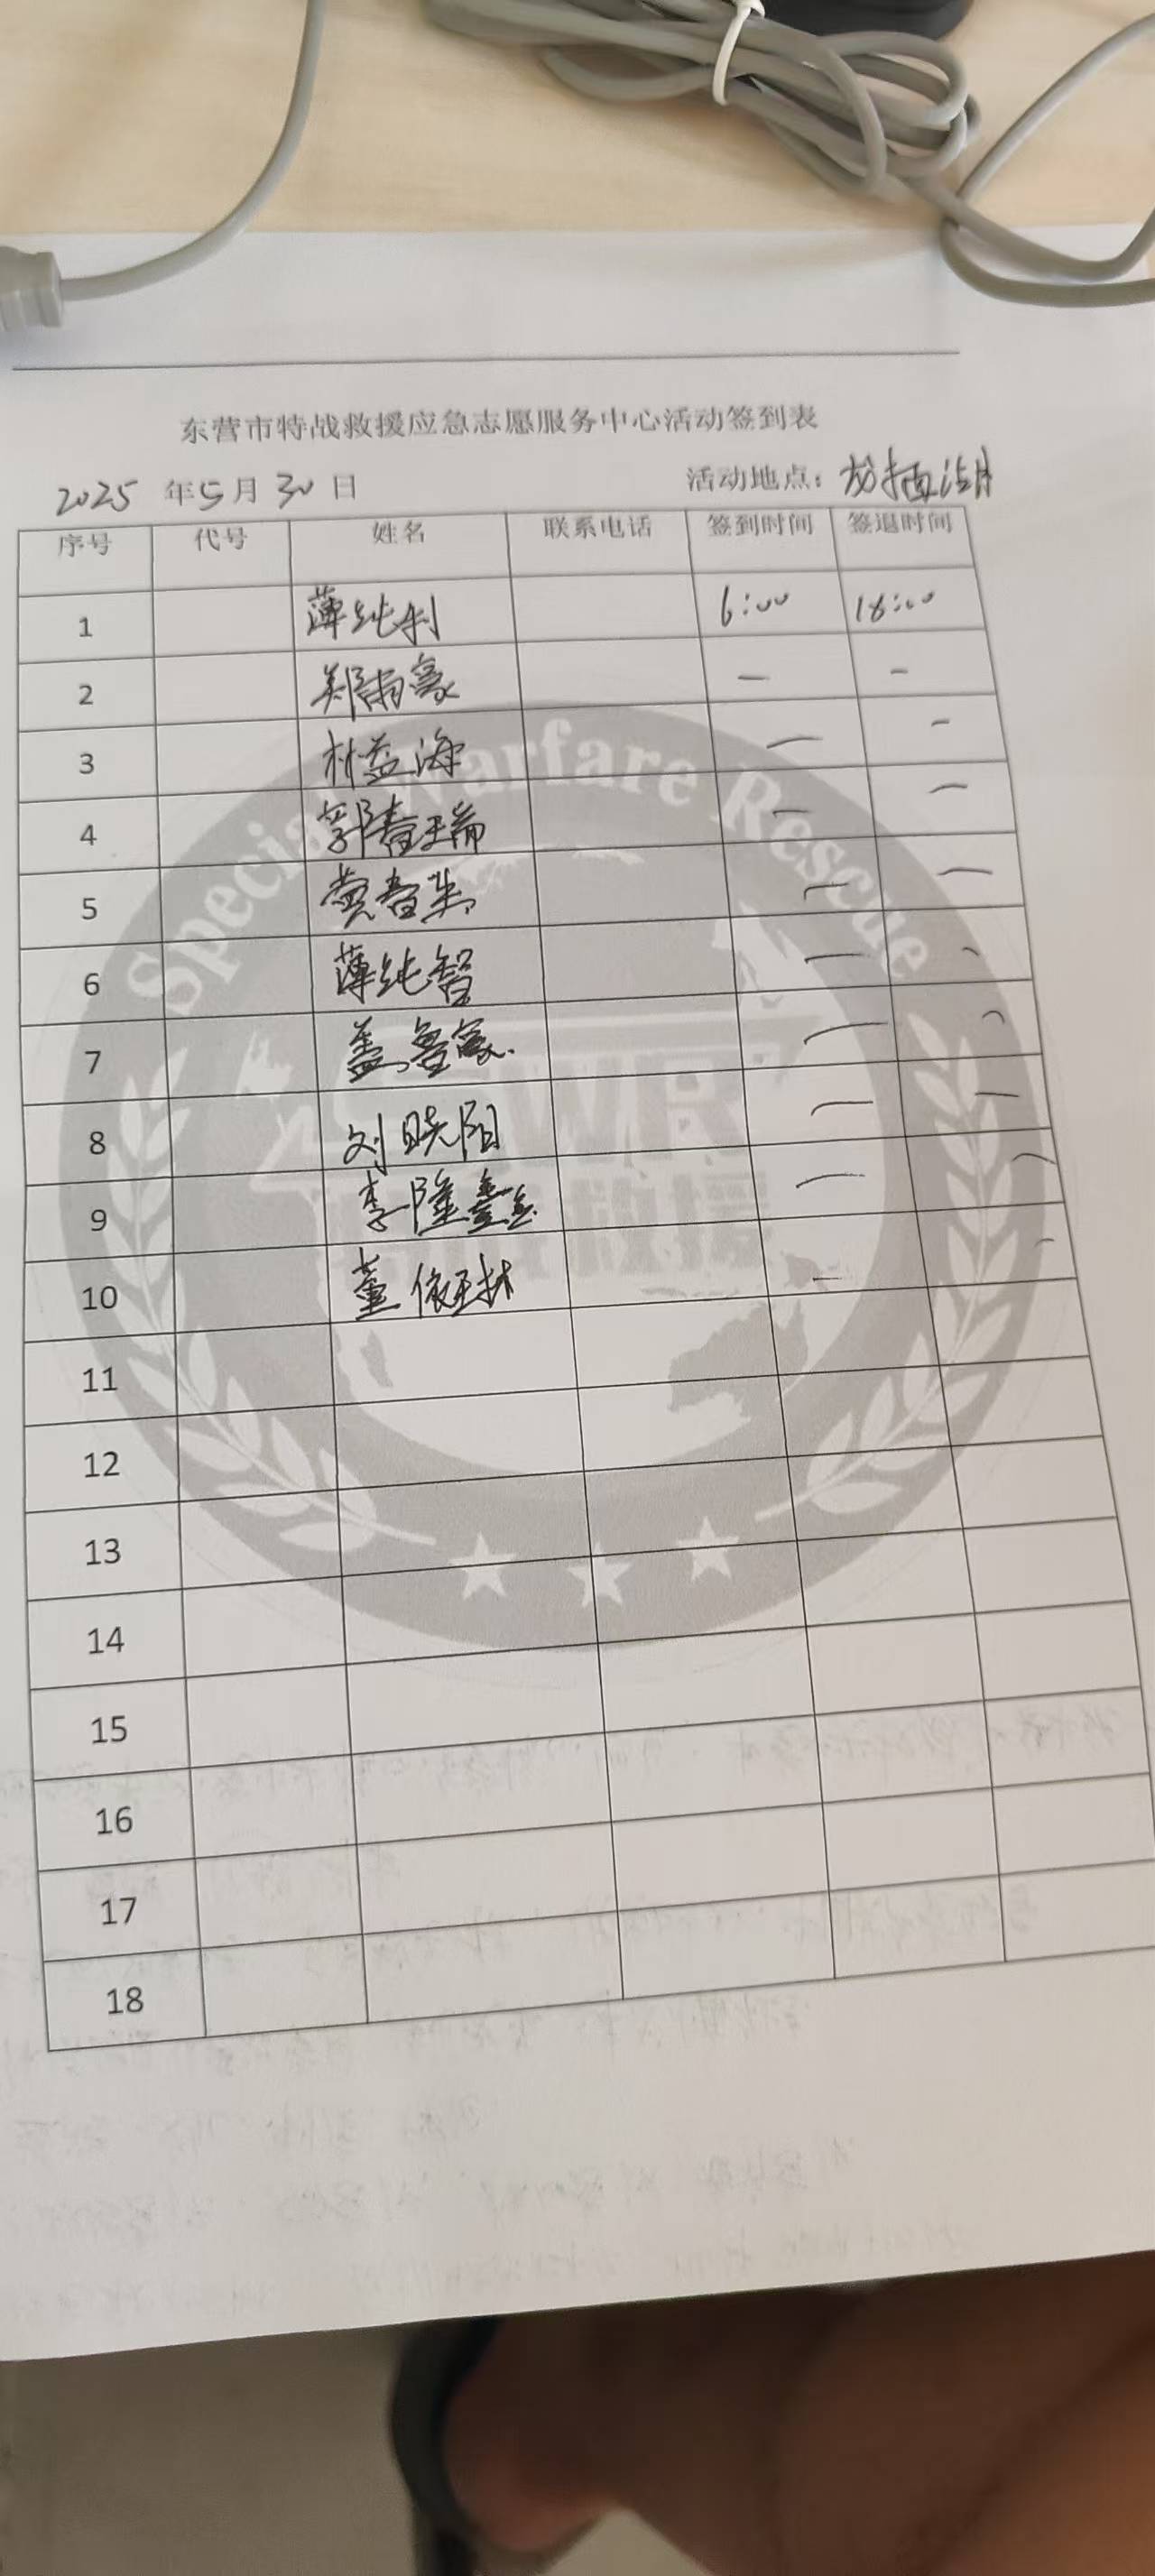 东营市特战救援应急志愿服务中心活动签到表
2025 年 5 月 30 日 活动地点：龙栖湖
序号 代号 姓名 联系电话 签到时间 签退时间
1 薄纯利 6:00 18:00
2 郑雨豪 — —
3 林益海 — —
4 郭春瑞 — —
5 黄春生 — —
6 薄纯智 — —
7 盖鲁豪 — —
8 刘晓阳 — —
9 李隆鑫 — —
10 董依琳 — —
11
12
13
14
15
16
17
18
Special Warfare Rescue
SWR